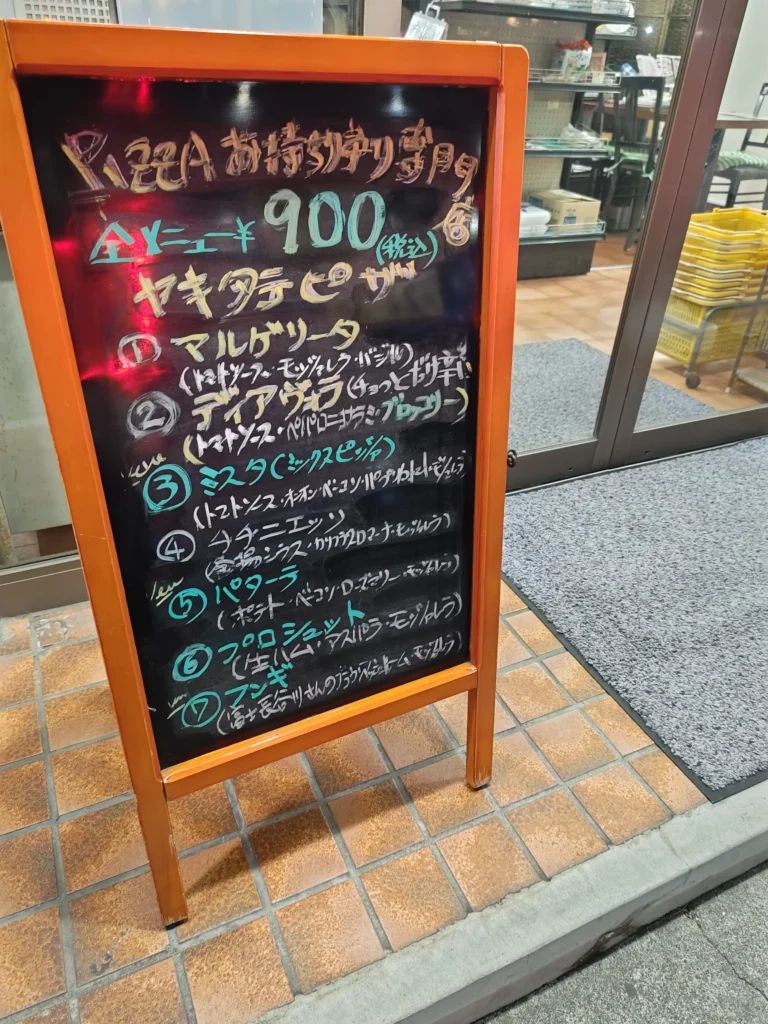 PIZZA お持ち帰り専門店
全メニュー¥900(税込)
ヤキタテピザ
① マルゲリータ
(トマトソース・モッツァレラ・バジル)
② ディアヴォラ(チョットだけ辛い
(トマトソース・ペパロニ・サラミ・ブロッコリー)
new
③ ミスタ(ミックスピッツァ)
(トマトソース・オニオン・ベーコン・パプリカ
④ チチニエッリ
シラス・モッツァレラ)
new
⑤ パターラ
(ポテト・ベーコン・ローズマリー・モッツァレラ)
⑥ プロシュット
(生ハム・アスパラ・モッツァレラ)
new
⑦ フンギ
(富士長谷川さんのブラウンマッシュルーム・モッツァレラ)